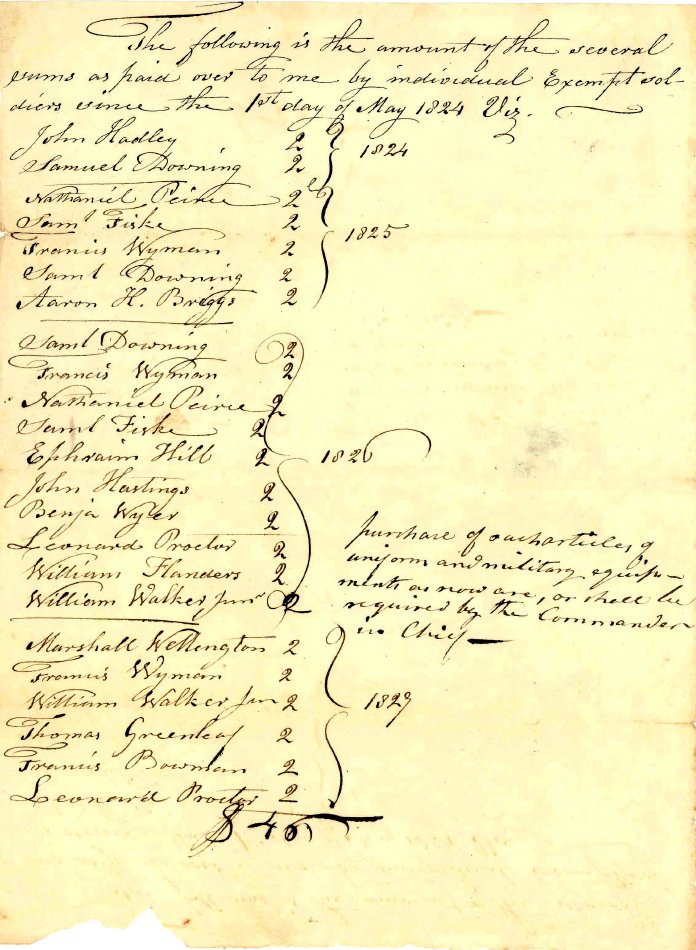 The following is the amount of the several
sums as paid over to me by individual Exempt sol-
diers since the 1st day of May 1824 Viz.
John Hadley 2
Samuel Downing 2
1824
Nathaniel Peirce 2
Saml Fiske 2
Francis Wyman 2
Saml Downing 2
Aaron H. Briggs 2
1825
Saml Downing 2
Francis Wyman 2
Nathaniel Peirce 2
Saml Fiske 2
Ephraim Hill 2
John Hastings 2
Benja Wyer 2
Leonard Proctor 2
William Flanders 2
William Walker Junr 2
1826
purchase of such articles of
uniform and military equip-
ments as now are, or shall be
required by the Commander
in Chief
Marshall Wellington 2
Francis Wyman 2
William Walker Jun 2
Thomas Greenleaf 2
Francis Bowman 2
Leonard Proctor 2
1827
$ 46